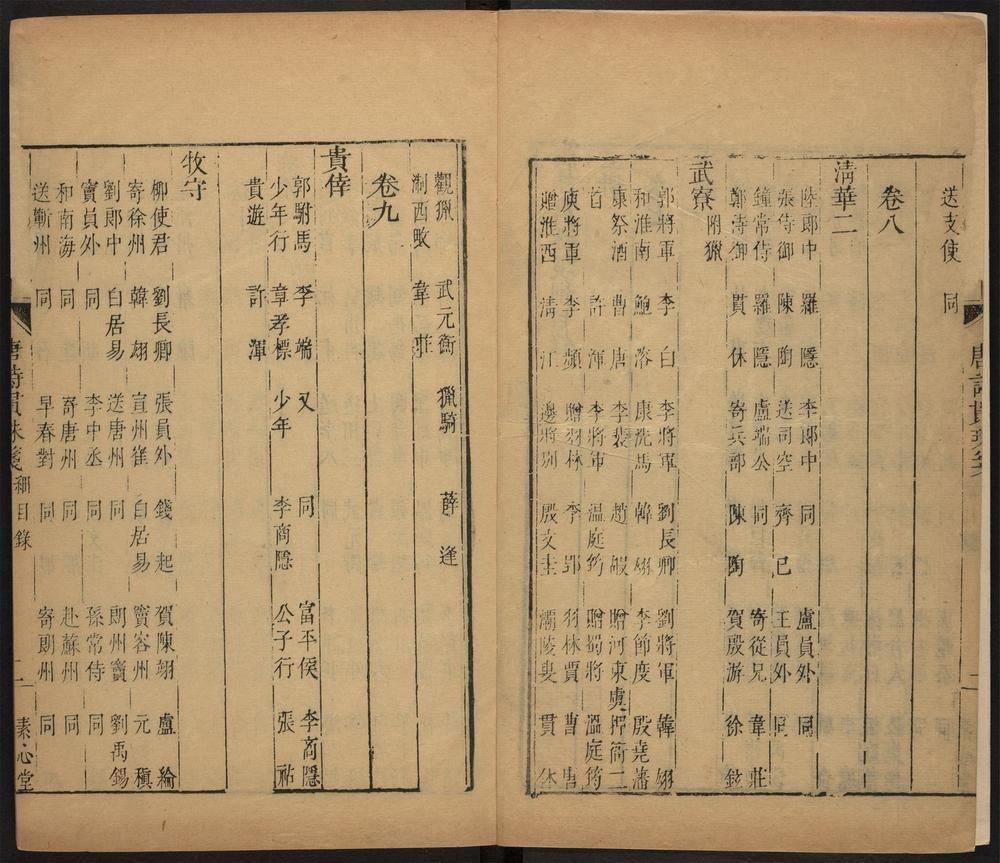 送支使 同
卷八
清華二
陸郎中 羅隱 李郎中 同 盧員外 同
張侍御 陳陶 送司空 齊己 王員外 同
鐘常侍 羅隱 盧端公 同 寄從兄 韋莊
鄭侍御 貫休 寄兵部 陳陶 賀殷游 徐鉉
武寮 附獵
郭將軍 李白 李將軍 劉長卿 劉將軍 韓翃
和淮南 鮑溶 康洗馬 韓翃 李節度 殷堯藩
康祭酒 曹唐 李裴 趙嘏 贈河東虞押衙二
首 許渾 李將軍 温庭筠 贈蜀將 溫庭筠
庾將軍 李頻 贈羽林 李郢 羽林賈 曹唐
贈淮西 清江 邊將別 殷文圭 灞陵叟 貫休
觀獵 武元衡 獵騎 薛逢
浙西畋 韋莊
卷九
貴倖
郭駙馬 李端 又 同 富平侯 李商隱
少年行 章孝標 少年 李商隱 公子行 張祜
貴遊 許渾
牧守
柳使君 劉長卿 張員外 錢起 賀陳翊 盧綸
寄徐州 韓翃 宣州崔 白居易 竇容州 元稹
劉郎中 白居易 送唐州 同 朗州竇 劉禹錫
竇員外 同 李中丞 同 孫常侍 同
和南海 同 寄唐州 同 赴蘇州 同
送蘄州 同 早春對 同 寄朗州 同
唐詩貫珠箋 目錄 二 素心堂